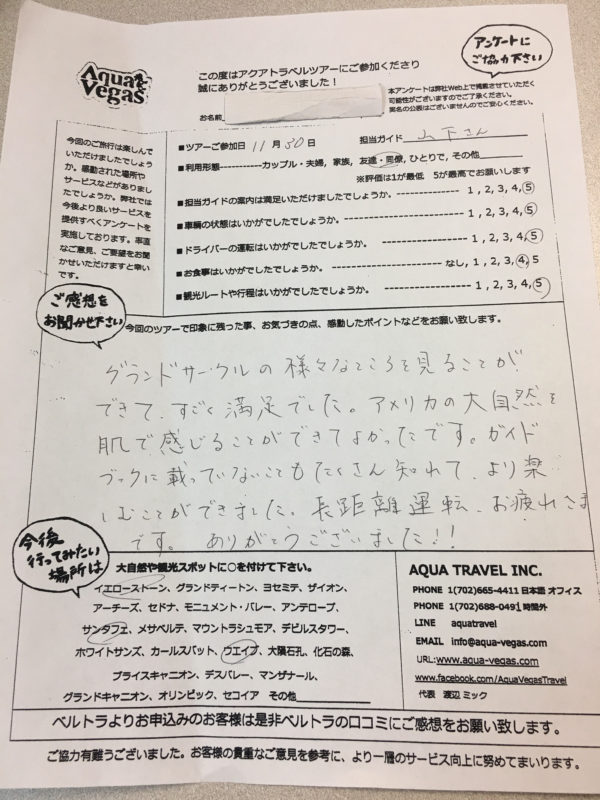 Aqua Vegas
この度はアクアトラベルツアーにご参加くださり
誠にありがとうございました！
アンケートに
ご協力下さい
お名前
本アンケートは弊社Web上で掲載させていただく
可能性がございますのでご了承ください。
実名の公表はございませんのでご安心ください。
今回のご旅行は楽しんで
いただけましたでしょう
か。感動された場所や
サービスなどがありまし
たでしょうか。弊社では
今後より良いサービスを
提供すべくアンケートを
実施しております。率直
なご意見、ご要望をお聞
かせいただけますと幸い
です。
■ツアーご参加日 11月30日 担当ガイド 山下さん
■利用形態------------カップル・夫婦, 家族, 友達・同僚, ひとりで, その他
※評価は1が最低 5が最高でお願いします
■担当ガイドの案内は満足いただけましたでしょうか。 -------------------- 1 , 2, 3, 4, 5
■車輌の状態はいかがでしたでしょうか。 -------------------- 1 , 2, 3, 4, 5
■ドライバーの運転はいかがでしたでしょうか。 -------------------- 1 , 2, 3, 4, 5
■お食事はいかがでしたでしょうか。 -------------------- なし, 1, 2, 3, 4, 5
■観光ルートや行程はいかがでしたでしょうか。 -------------------- 1 , 2, 3, 4, 5
ご感想を
お聞かせ下さい
今回のツアーで印象に残った事、お気づきの点、感動したポイントなどをお願い致します。
グランドサークルの様々なところを見ることが
できて、すごく満足でした。アメリカの大自然を
肌で感じることができてよかったです。ガイド
ブックに載っていないこともたくさん知れて、より楽
しむことができました。長距離運転、お疲れさま
です。 ありがとうございました!!
今後
行ってみたい
場所は
大自然や観光スポットに○を付けて下さい。
イエローストーン、グランドティートン、ヨセミテ、ザイオン、
アーチーズ、セドナ、モニュメント・バレー、アンテロープ、
サンタフェ、メサベルデ、マウントラシュモア、デビルスタワー、
ホワイトサンズ、カールスバット、ウエイブ、大隕石孔、化石の森、
ブライスキャニオン、デスバレー、マンザナール、
グランドキャニオン、オリンピック、セコイア その他
AQUA TRAVEL INC.
PHONE 1(702)665-4411 日本語 オフィス
PHONE 1(702)688-0491 時間外
LINE aquatravel
EMAIL info@aqua-vegas.com
URL:www.aqua-vegas.com
www.facebook.com/AquaVegasTravel
代表 渡辺 ミック
ベルトラよりお申込みのお客様は是非ベルトラの口コミにご感想をお願い致します。
ご協力有難うございました。お客様の貴重なご意見を参考に、より一層のサービス向上に努めてまいります。